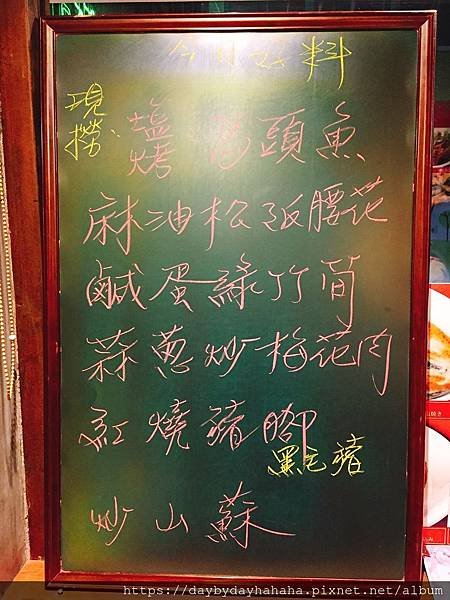 今日好料
現撈. 塩烤 馬頭魚
麻油松阪腰花
鹹蛋綠竹筍
蒜蔥炒梅花肉
紅燒豬腳
黑毛豬
炒山蘇
https://daybydayhahaha.pixnet.net/album